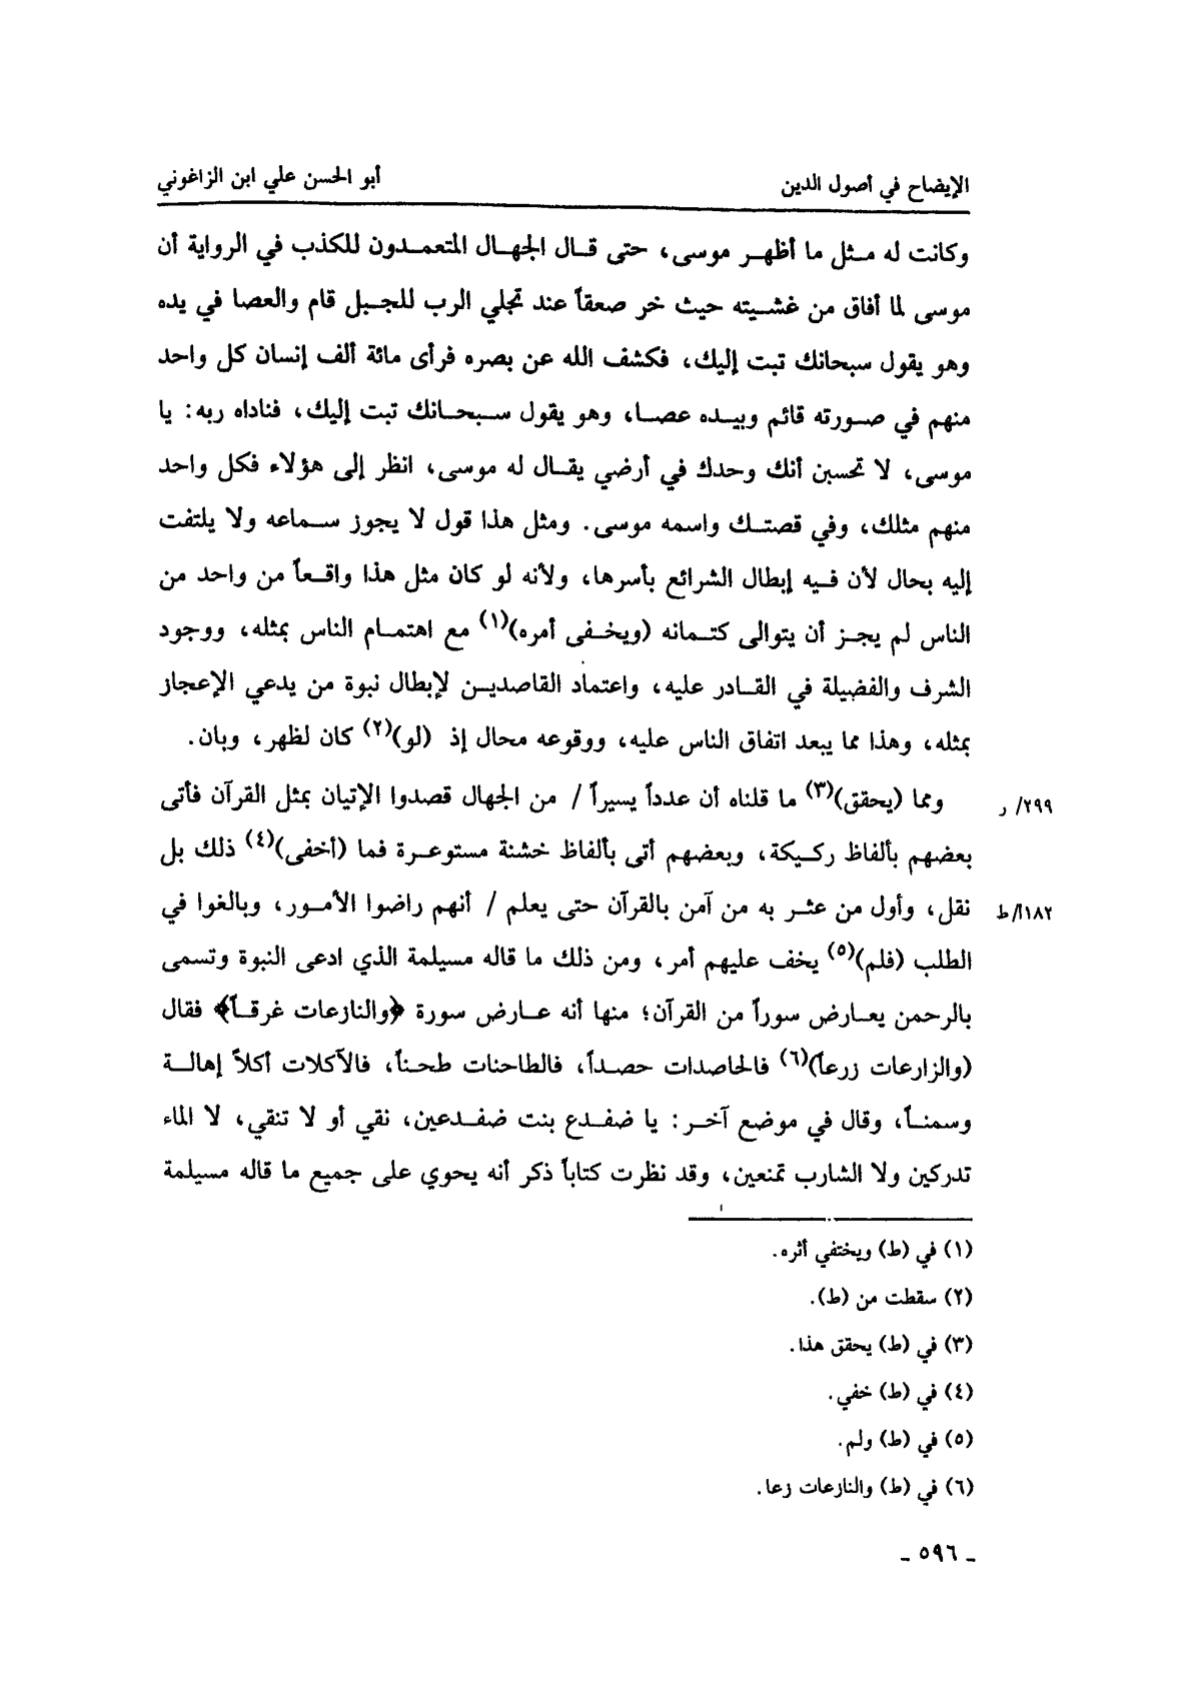 الإيضاح في أصول الدين أبو الحسن علي ابن الزاغوني
وكانت له مثل ما أظهر موسى، حتى قال الجهال المتعمدون للكذب في الرواية أن
موسى لما أفاق من غشيته حيث خر صعقاً عند تجلي الرب للجبل قام والعصا في يده
وهو يقول سبحانك تبت إليك، فكشف الله عن بصره فرأى مائة ألف إنسان كل واحد
منهم في صورته قائم وبيده عصا، وهو يقول سبحانك تبت إليك، فناداه ربه: يا
موسى، لا تحسبن أنك وحدك في أرضي يقال له موسى، انظر إلى هؤلاء فكل واحد
منهم مثلك، وفي قصتك واسمه موسى. ومثل هذا قول لا يجوز سماعه ولا يلتفت
إليه بحال لأن فيه إبطال الشرائع بأسرها، ولأنه لو كان مثل هذا واقعاً من واحد من
الناس لم يجز أن يتوالى كتمانه (ويخفى أمره)(١) مع اهتمام الناس بمثله، ووجود
الشرف والفضيلة في القادر عليه، واعتماد القاصدين لإبطال نبوة من يدعي الإعجاز
بمثله، وهذا مما يبعد اتفاق الناس عليه، ووقوعه محال إذ (لو)(٢) كان لظهر، وبان.
٢٩٩/ ر ومما (يحقق)(٣) ما قلناه أن عدداً يسيراً / من الجهال قصدوا الإتيان بمثل القرآن فأتى
بعضهم بألفاظ ركيكة، وبعضهم أتى بألفاظ خشنة مستوعرة فما (أخفى)(٤) ذلك بل
١٨٢أ/ط نقل، وأول من عثر به من آمن بالقرآن حتى يعلم / أنهم راضوا الأمور، وبالغوا في
الطلب (فلم)(٥) يخف عليهم أمر، ومن ذلك ما قاله مسيلمة الذي ادعى النبوة وتسمى
بالرحمن يعارض سوراً من القرآن؛ منها أنه عارض سورة ﴿والنازعات غرقاً﴾ فقال
(والزارعات زرعاً)(٦) فالحاصدات حصداً، فالطاحنات طحناً، فالآكلات أكلاً إهالة
وسمناً، وقال في موضع آخر: يا ضفدع بنت ضفدعين، نقي أو لا تنقي، لا الماء
تدركين ولا الشارب تمنعين، وقد نظرت كتاباً ذكر أنه يحوي على جميع ما قاله مسيلمة
(١) في (ط) ويختفي أثره.
(٢) سقطت من (ط).
(٣) في (ط) يحقق هذا.
(٤) في (ط) خفي.
(٥) في (ط) ولم.
(٦) في (ط) والنازعات زعا.
ـ ٥٩٦ ـ